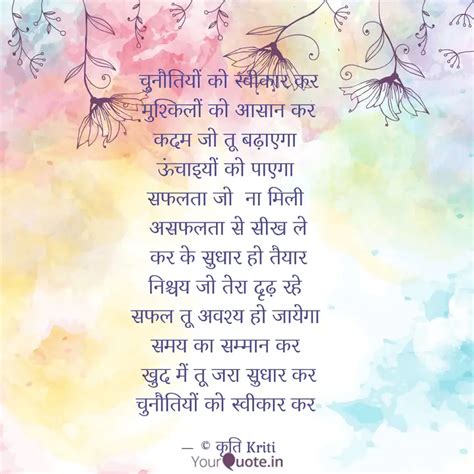 चुनौतियों को स्वीकार कर
मुश्किलों को आसान कर
कदम जो तू बढ़ाएगा
ऊंचाइयों को पाएगा
सफलता जो ना मिली
असफलता से सीख ले
कर के सुधार हो तैयार
निश्चय जो तेरा दृढ़ रहे
सफल तू अवश्य हो जायेगा
समय का सम्मान कर
खुद में तू जरा सुधार कर
चुनौतियों को स्वीकार कर
— © कृति Kriti
YourQuote.in